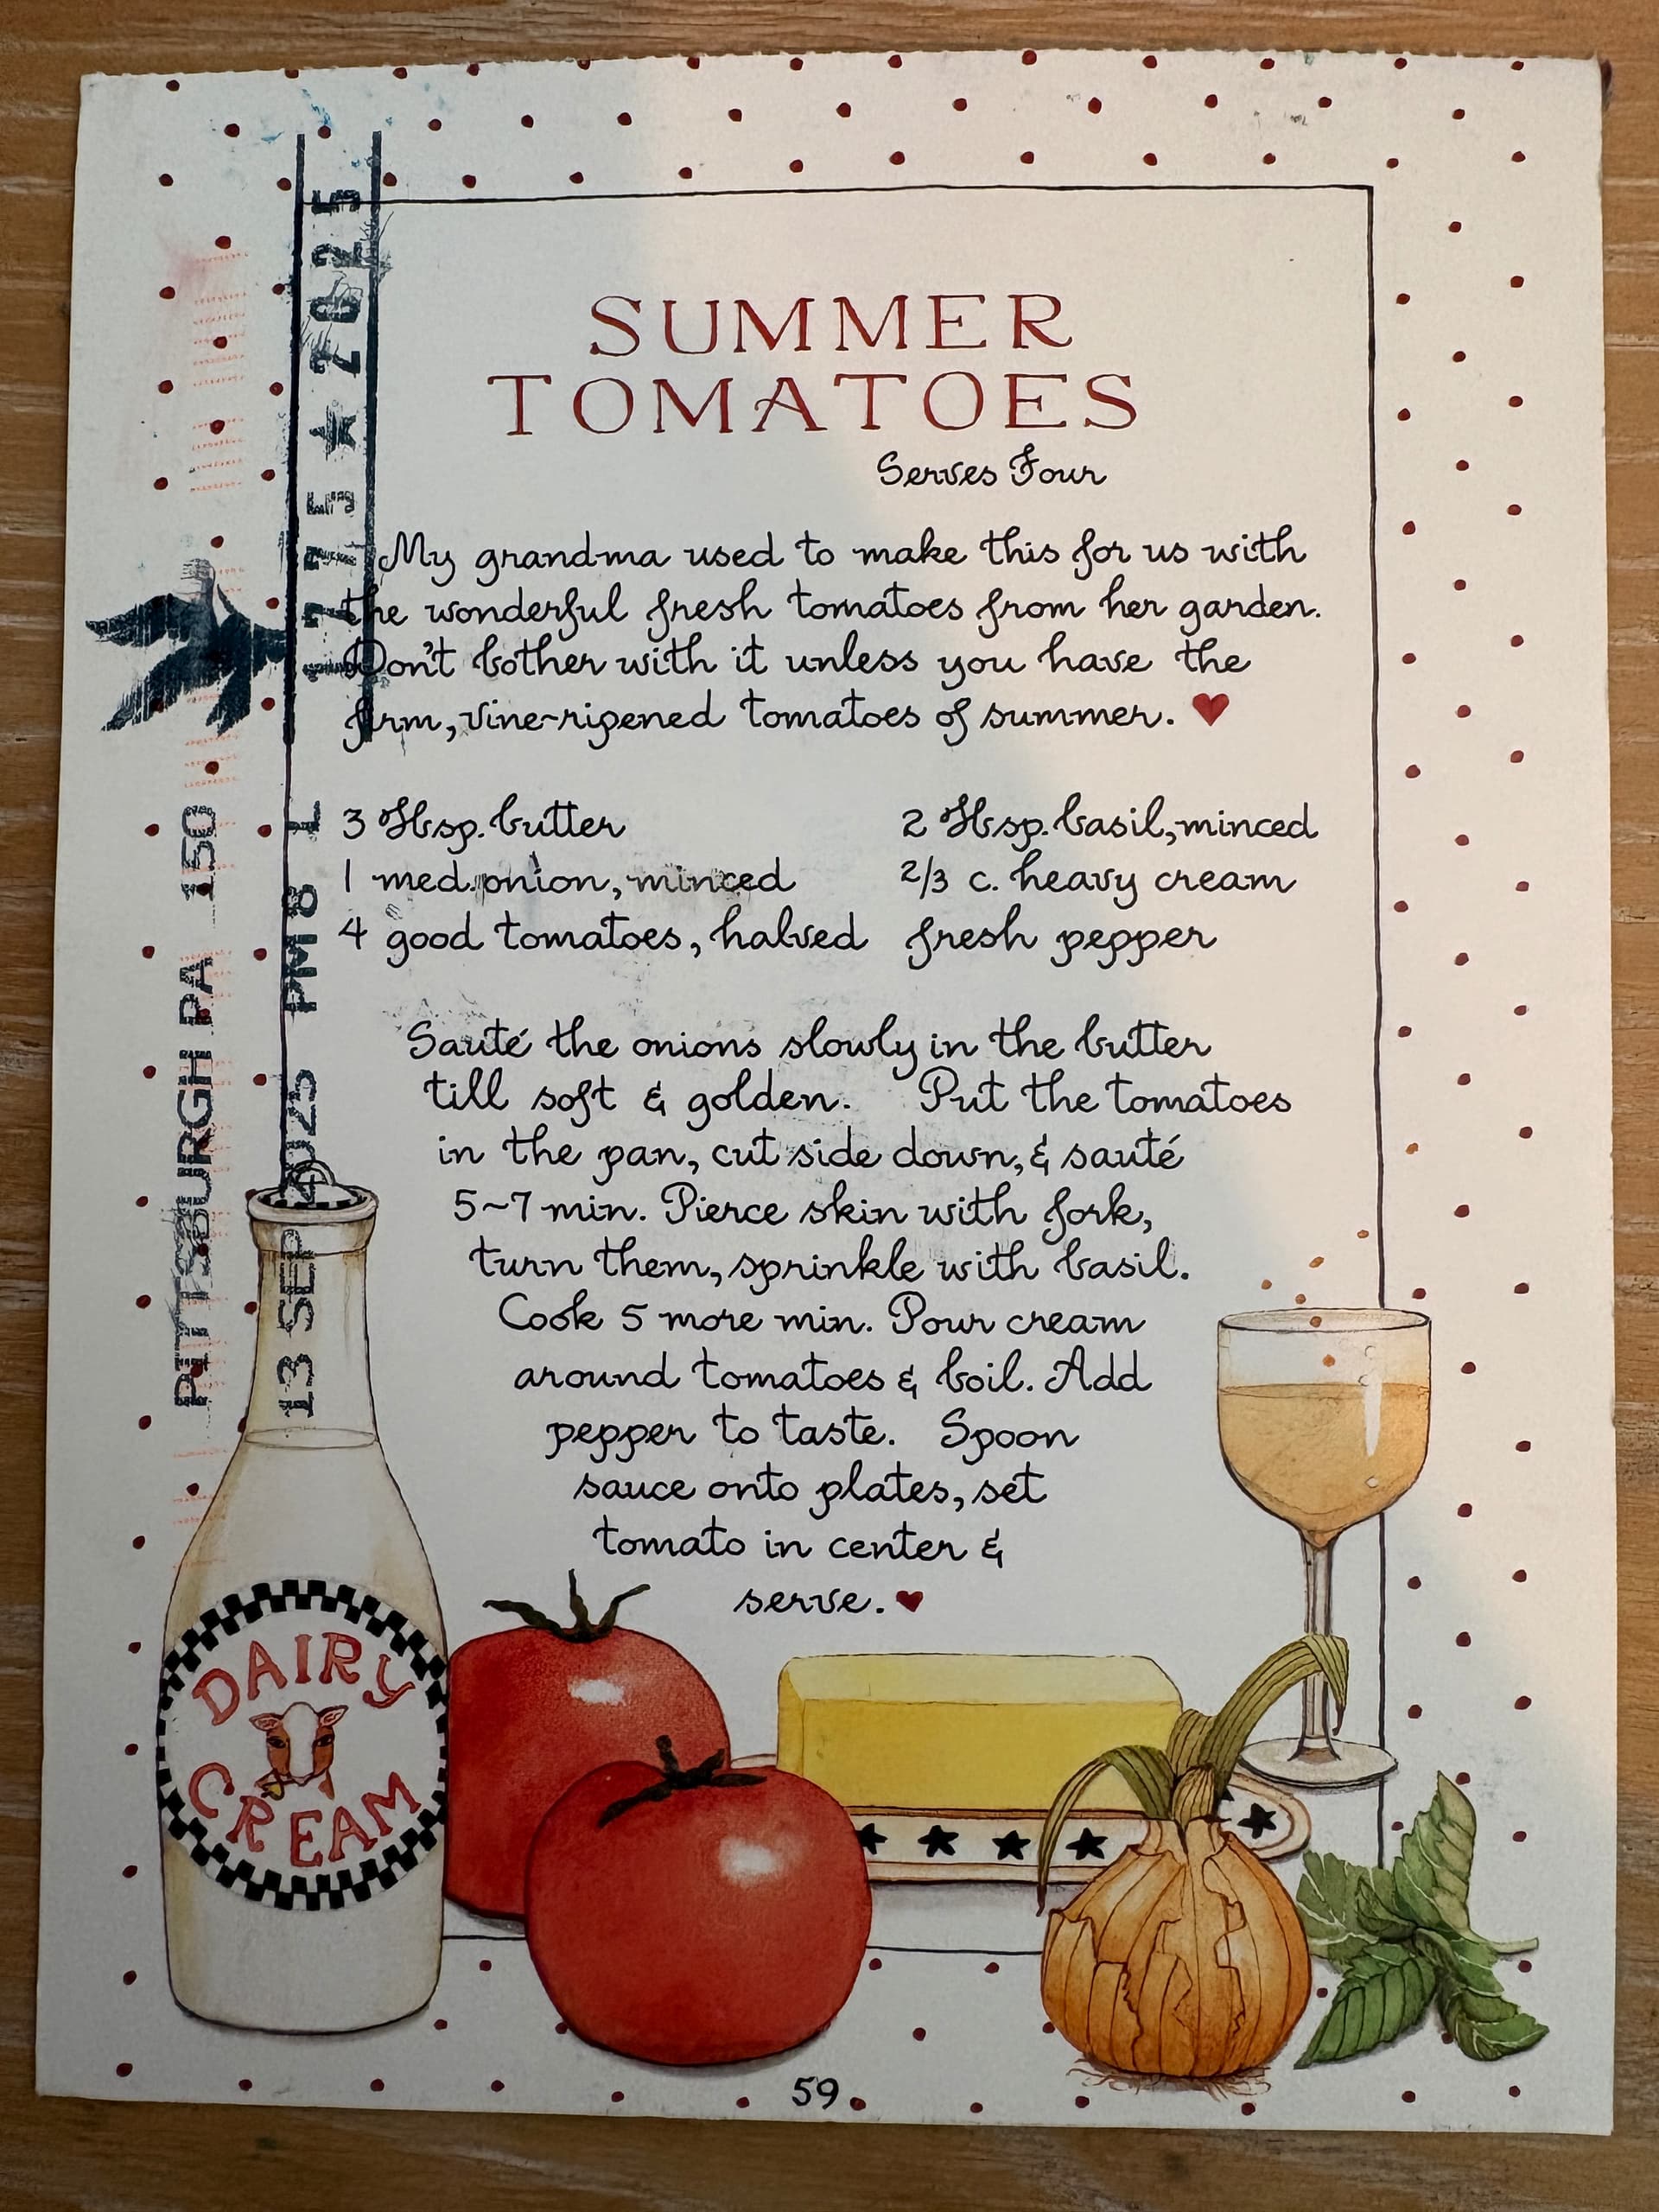 SUMMER
TOMATOES
Serves Four
My grandma used to make this for us with
the wonderful fresh tomatoes from her garden.
Don't bother with it unless you have the
firm, vine-ripened tomatoes of summer. ♥
3 Tbsp. butter
1 med. onion, minced
4 good tomatoes, halved
2 Tbsp. basil, minced
2/3 c. heavy cream
fresh pepper
Sauté the onions slowly in the butter
till soft & golden. Put the tomatoes
in the pan, cut side down, & sauté
5~7 min. Pierce skin with fork,
turn them, sprinkle with basil.
Cook 5 more min. Pour cream
around tomatoes & boil. Add
pepper to taste. Spoon
sauce onto plates, set
tomato in center &
serve. ♥
DAIRY
CREAM
59
PITTSBURGH PA 150
13 SEP 2025 PM 8 L
1775 ★ 2025